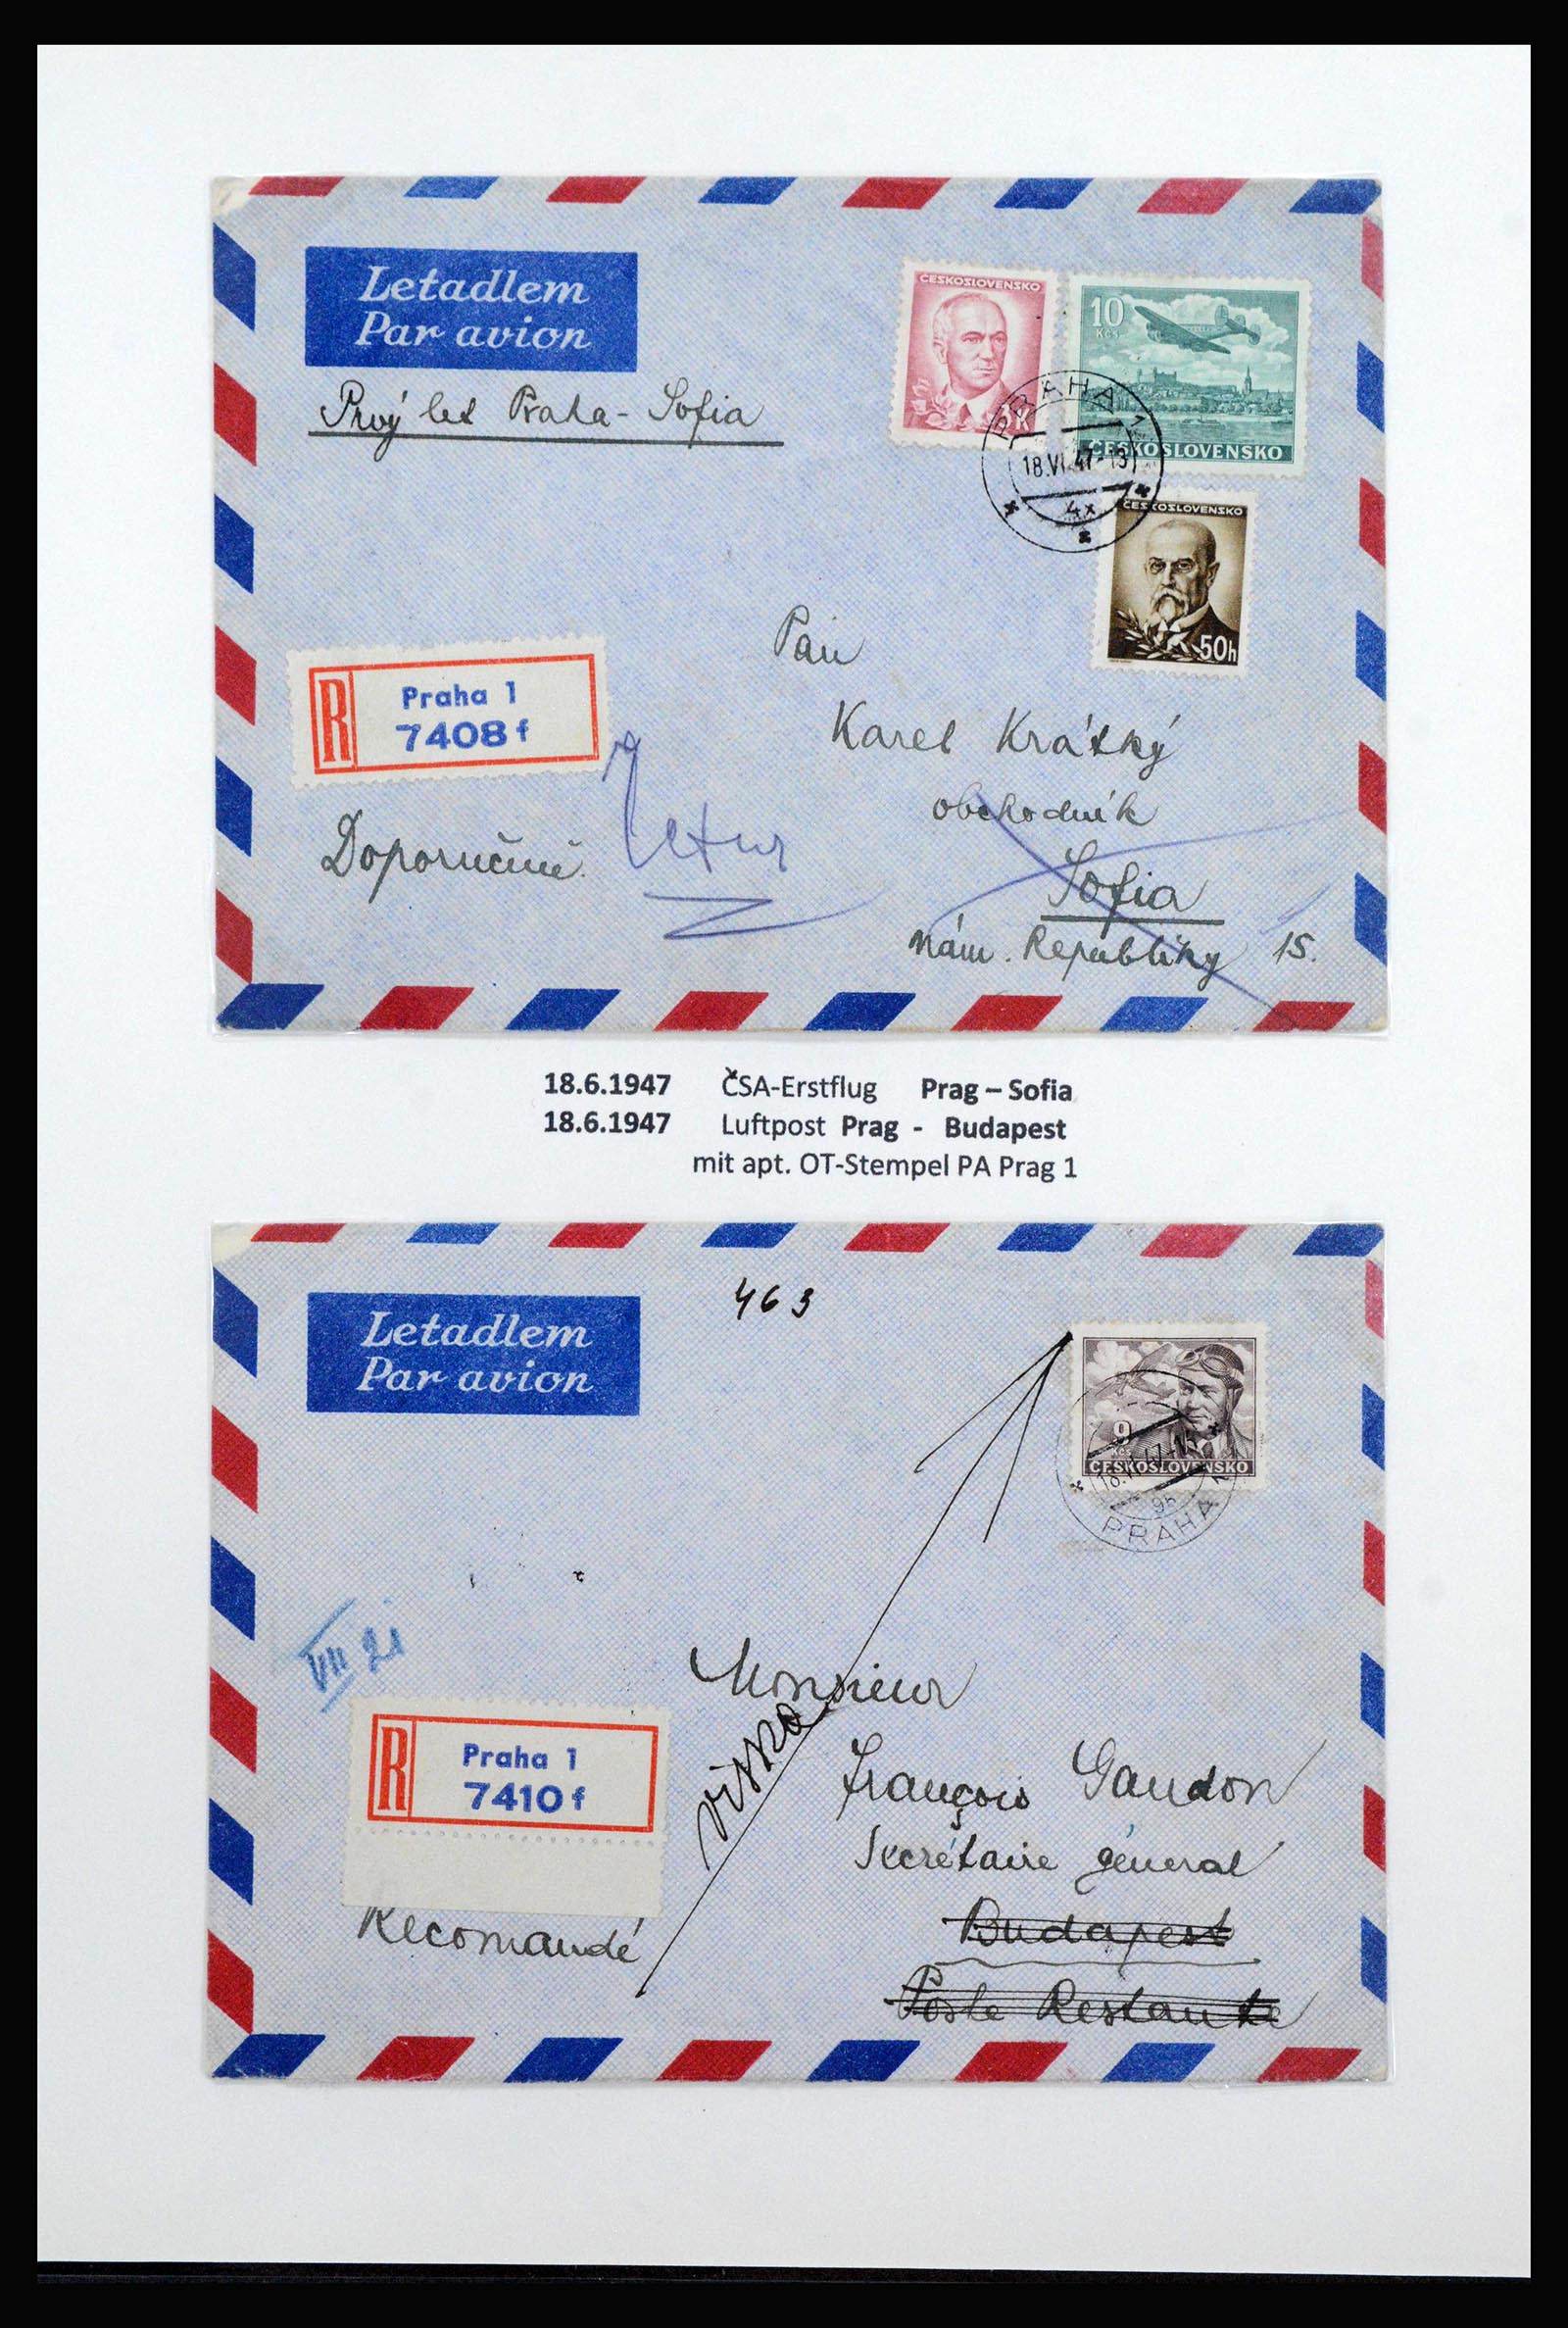 Letadlem
Par avion
Prvý let Praha - Sofia
ČESKOSLOVENSKO
10
Kčs
ČESKOSLOVENSKO
PRAHA 1
18.VI.47-13
4x
ČESKOSLOVENSKO
50h
R
Praha 1
7408 f
Pan
Karel Krátký
obchodník
Sofia
nám. Republiky 15.
Doporučeně
Retur
18.6.1947 ČSA-Erstflug Prag – Sofia
18.6.1947 Luftpost Prag - Budapest
mit apt. OT-Stempel PA Prag 1
Letadlem
Par avion
463
9
Kčs
ČESKOSLOVENSKO
18.VI.47-15
9h
PRAHA 1
VII 21
R
Praha 1
7410 f
Recomandé
vissza
Monsieur
François Gaudon
Secrétaire géneral
Budapest
Poste Restante